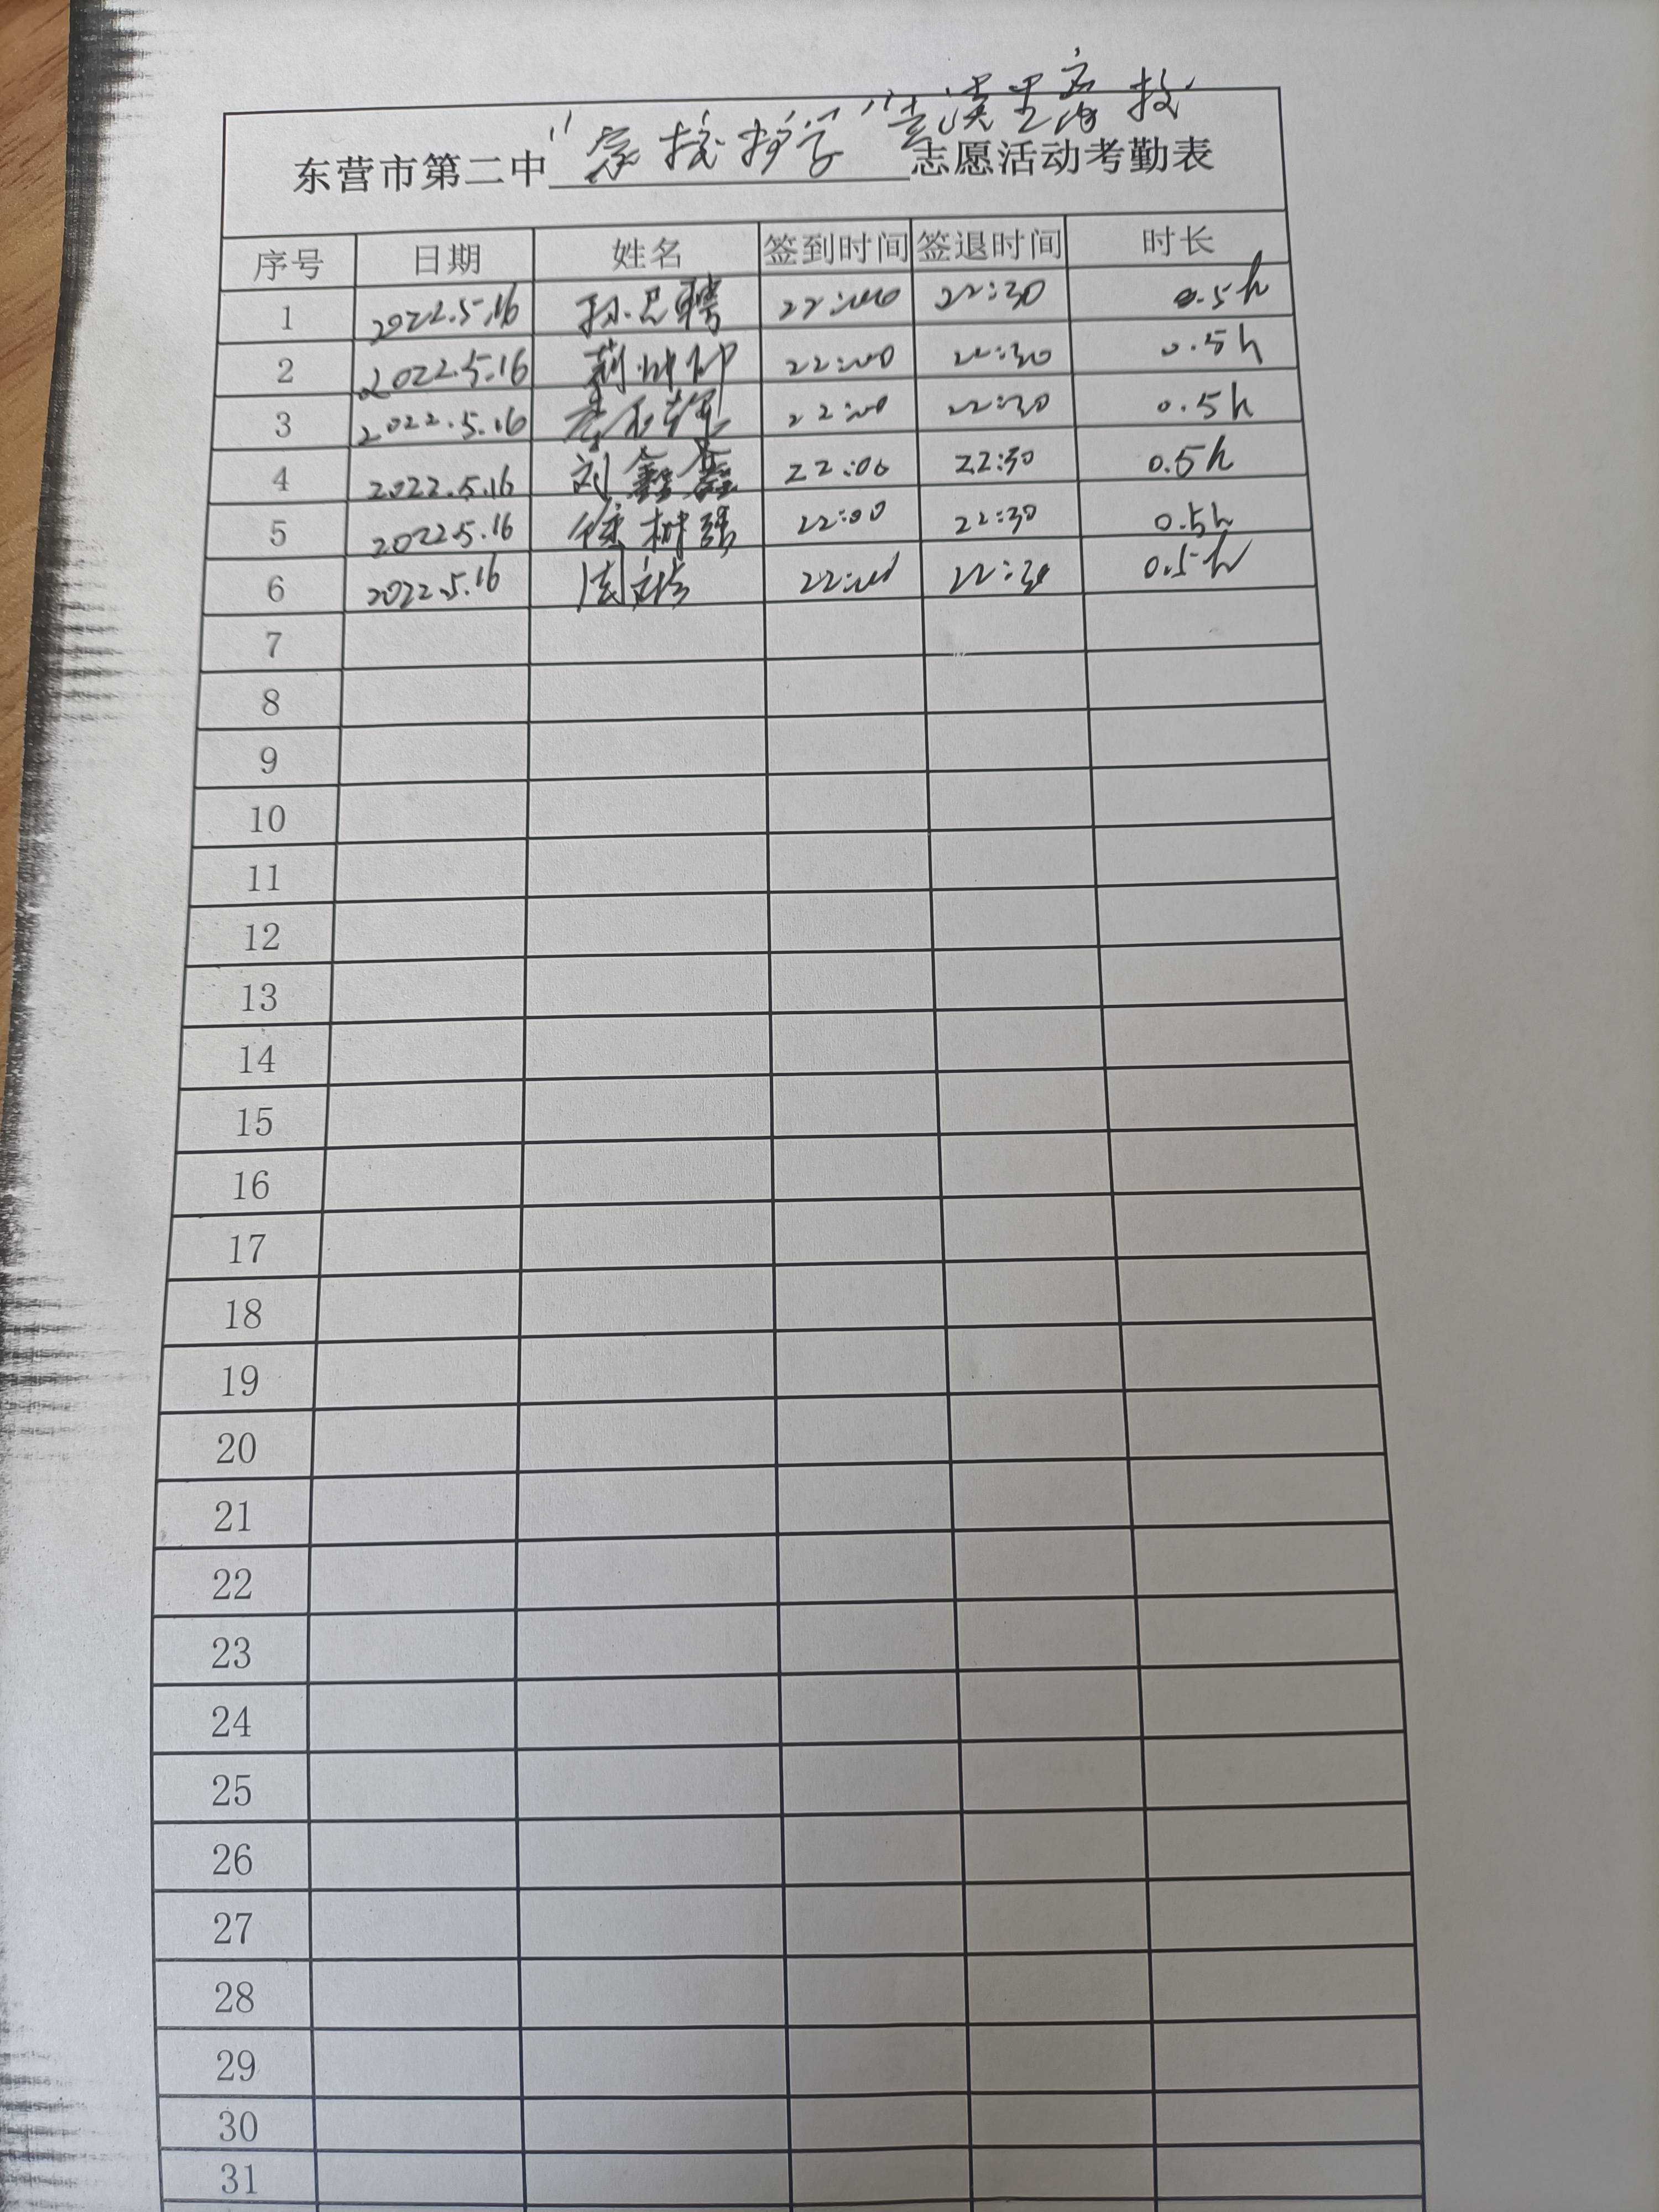 东营市第二中"家校护学"志愿活动考勤表
序号 日期 姓名 签到时间 签退时间 时长
1 2022.5.16 孙 聘 22:00 22:30 0.5h
2 2022.5.16 22:00 22:30 0.5h
3 2022.5.16 22:00 22:30 0.5h
4 2022.5.16 刘鑫鑫 22:00 22:30 0.5h
5 2022.5.16 树强 22:00 22:30 0.5h
6 2022.5.16 周 22:00 22:30 0.5h
7
8
9
10
11
12
13
14
15
16
17
18
19
20
21
22
23
24
25
26
27
28
29
30
31